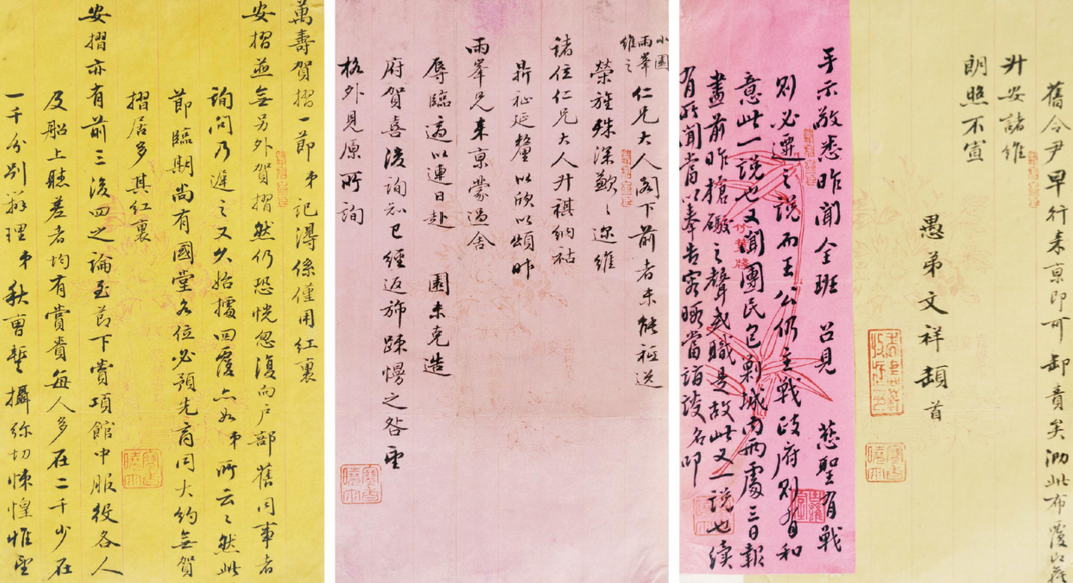 舊令尹早行来京即可卸責矣泐此布覆
升安諸維
朗照不宣
愚弟文祥頓首
手示敬悉昨聞全班召見慈聖有戰
則必遷之說而王公仍主戰政府則有和
意此一說也又聞團民包剿城内兩處三日報
盡前昨槍礮之聲或職是故此又一說也續
有所聞當以奉告容晤當詣談名叩
小園
雨峯
維之
仁兄大人閣下前者未能祗送
榮旌殊深歉〻邇維
諸位仁兄大人升祺納祜
鼎祉延釐以欣以頌昨
雨峯兄来京蒙過舍
辱臨適以連日赴園未克造
府賀喜後詢知已經返旆踈慢之咎望
格外見原所詢
萬壽賀摺一節弟記得係僅用紅裏
安摺並無另外賀摺然仍恐恍忽復向戶部舊同事者
詢問乃遲之又久始據回覆亦如弟所云〻然此
節臨期尚有國堂各位必預先商同大約無賀
摺居多其紅裏
安摺亦有前三後四之論至節下賞項館中服役各人
及船上聽差者均有賞賚每人多在二千少在
一千分別辦理弟秋曹蹔攝弥切悚惶惟望